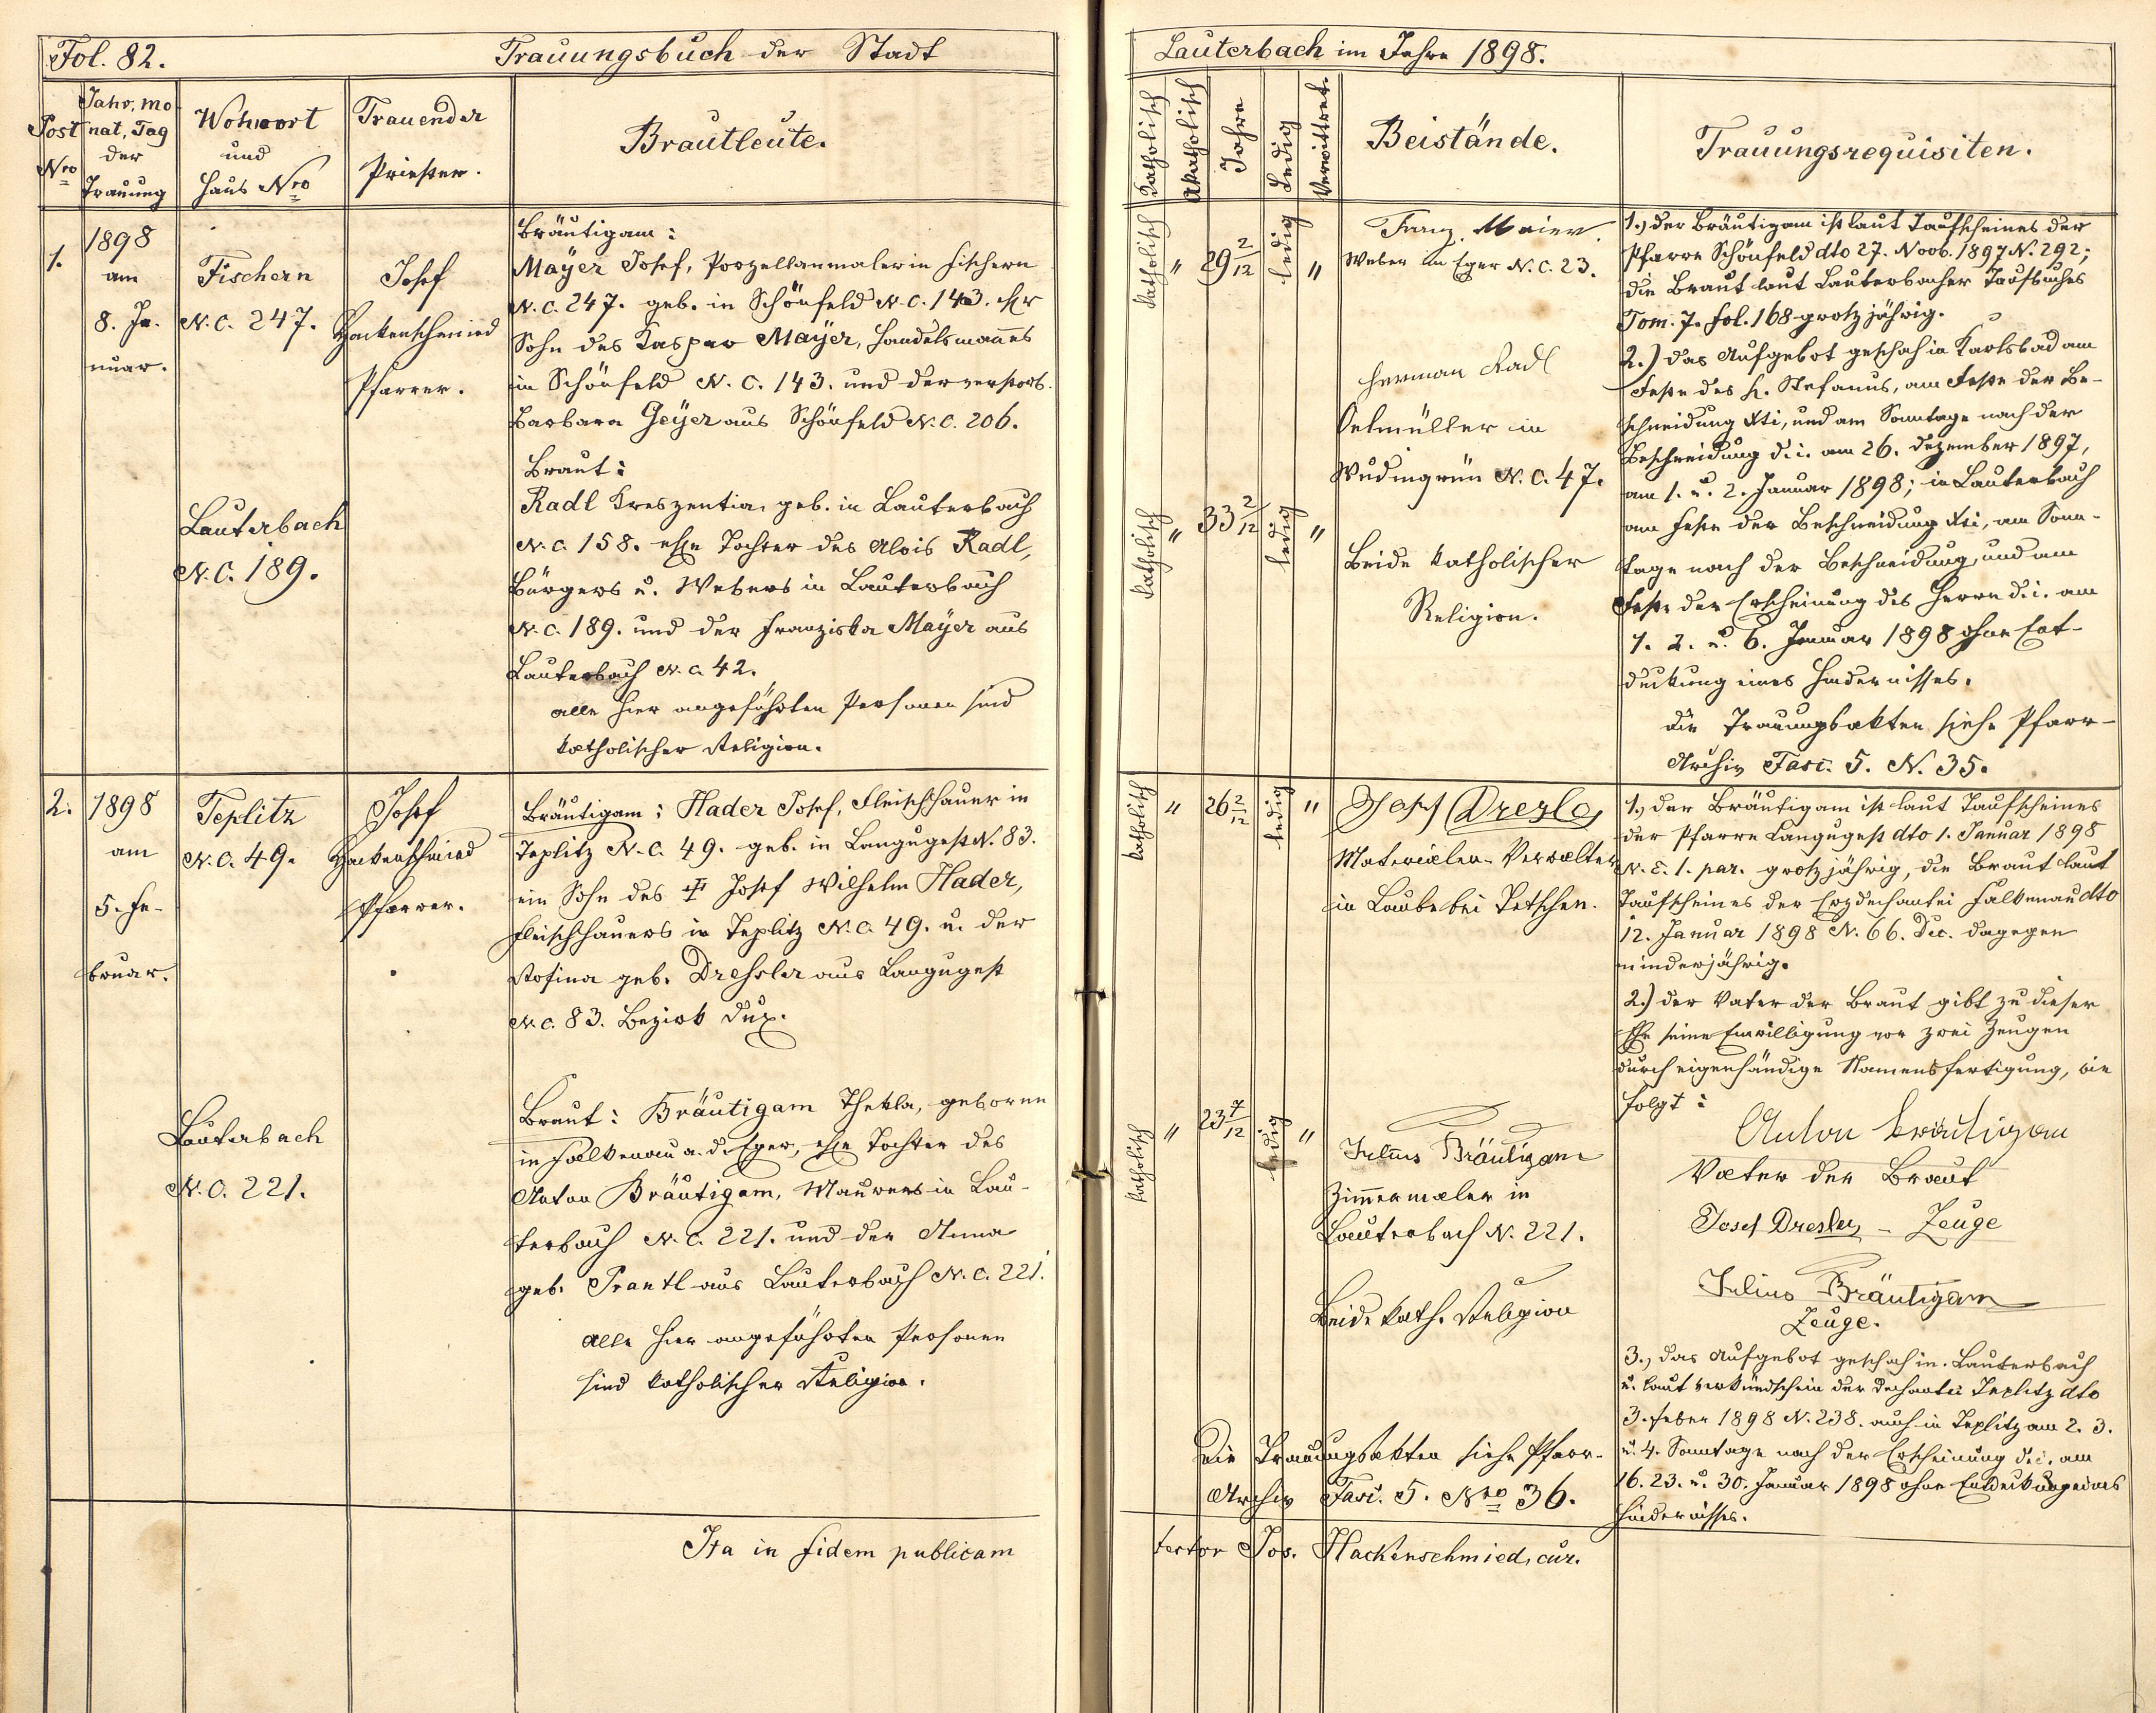 Fol. 82.
Trauungsbuch der Stadt
Post Nro
Jahr, Mo-
nat, Tag
der
Trauung
Wohnort
und
Haus Nro
Trauender
Priester.
Brautleute.
1.
1898
am
8. Ja-
nuar.
Fischern
N. C. 247.
Josef
Hackenschmied
Pfarrer.
Bräutigam:
Mayer Josef, Porzellanmaler in Fischern
N. C. 247. geb. in Schönfeld N. C. 143.
Sohn des Kaspar Mayer, Handelsmannes
in Schönfeld N. C. 143. und der verstorb.
Barbara Geyer aus Schönfeld N. C. 206.
Lauterbach
N. C. 189.
Braut:
Radl Kreszentia, geb. in Lauterbach
N. C. 158. ehe Tochter des Alois Radl,
Bürgers u. Webers in Lauterbach
N. C. 189. und der Franziska Mayer aus
Lauterbach N. C. 42.
Alle hier angeführten Personen sind
katholischer Religion.
2.
1898
am
5. Fe-
bruar.
Teplitz
N. C. 49.
Josef
Hackenschmied
Pfarrer.
Bräutigam: Hader Josef, Fleischhauer in
Teplitz N. C. 49. geb. in Langugest N. 83.
ein Sohn des Josef Wilhelm Hader,
Fleischhauers in Teplitz N. C. 49. u. der
Rosina geb. Dressler aus Langugest
N. C. 83. Bezirk Dux.
Lauterbach
N. C. 221.
Braut: Bräutigam Thekla, geboren
in Falkenau a. d. Eger, ehe Tochter des
Anton Bräutigam, Maurers in Lau-
terbach N. C. 221. und der Anna
geb. Prantl aus Lauterbach N. C. 221.
Alle hier angeführten Personen
sind katholischer Religion.
Ita in fidem publicam
Lauterbach im Jahre 1898.
Katholisch
Akatholisch
Jahre
Ledig
Verwittwet
Beistände.
Trauungsrequisiten.
katholisch " 29 2/12 ledig "
Franz Maier
Weber in Eger N. C. 23.
Herman Radl
Oelmüller in
Wudingrün N. C. 47.
katholisch " 33 2/12 ledig "
Beide katholischer
Religion.
1.) Der Bräutigam ist laut Taufscheines der
Pfarre Schönfeld dto 27. Novb. 1897 N. 292;
die Braut laut Lauterbacher Taufbuches
Tom. 7. fol. 168 großjährig.
2.) Das Aufgebot geschah in Karlsbad am
Feste des h. Stefanus, am Feste der Be-
schneidung Xti, und am Sonntage nach der
Beschneidung d. i. am 26. Dezember 1897,
am 1. u. 2. Januar 1898; in Lauterbach
am Feste der Beschneidung Xti, am Sonn-
tage nach der Beschneidung, und am
Feste der Erscheinung des Herrn d. i. am
1. 2. u. 6. Januar 1898 ohne Ent-
deckung eines Hindernisses.
Die Trauungsakten siehe Pfarr-
Archiv Fasc. 5. N. 35.
katholisch " 26 2/12 ledig "
Josef Dresler
Materialien-Verwalter
in Laube bei Tetschen.
katholisch " 23 7/12 ledig "
Julius Bräutigam
Zimmermaler in
Lauterbach N. 221.
Beide kath. Religion
Die Trauungsakten siehe Pfarr-
Archiv Fasc. 5. Nro 36.
1.) Der Bräutigam ist laut Taufscheines
der Pfarre Langugest dto 1. Januar 1898
N. E. 1. par. großjährig, die Braut laut
Taufscheines der Erzdechantei Falkenau dto
12. Januar 1898 N. 66. Dec. dagegen
minderjährig.
2.) Der Vater der Braut gibt zu dieser
Ehe seine Einwilligung vor zwei Zeugen
durch eigenhändige Namensfertigung, wie
folgt:
Anton Bräutigam
Vater der Braut
Josef Dresler – Zeuge
Julius Bräutigam
Zeuge.
3.) Das Aufgebot geschah in Lauterbach
u. laut Verkündschein der Dechantei Teplitz dto
3. Feber 1898 N. 238. auch in Teplitz am 2. 3.
u. 4. Sonntage nach der Erscheinung d. i. am
16. 23. u. 30. Januar 1898 ohne Entdeckung eines
Hindernisses.
testor Jos. Hackenschmied, cur.